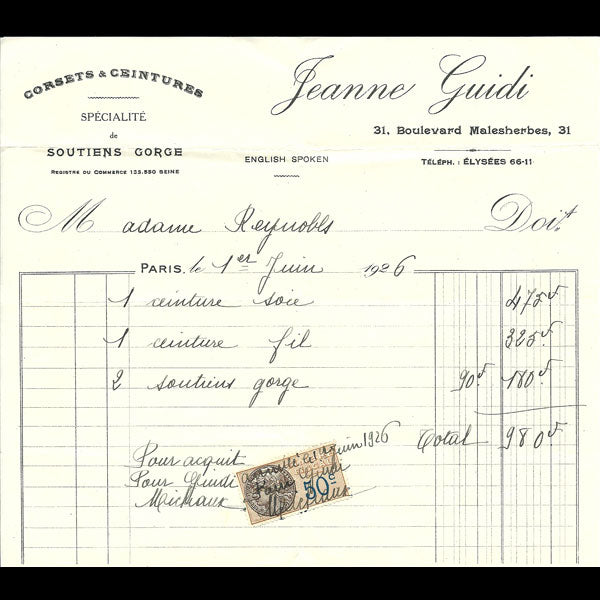 CORSETS & CEINTURES
SPÉCIALITÉ
de
SOUTIENS GORGE
REGISTRE DU COMMERCE 133.550 SEINE
Jeanne Guidi
31, Boulevard Malesherbes, 31
ENGLISH SPOKEN
TÉLÉPH. : ÉLYSÉES 66-11
Madame Reynolds Doit
PARIS, le 1er Juin 1926
1 ceinture soie 475f
1 ceinture fil 325f
2 soutiens gorge 90f 180f
Total 980f
Pour acquit
Pour Guidi
Michaux
juin 1926
50c
Michaux